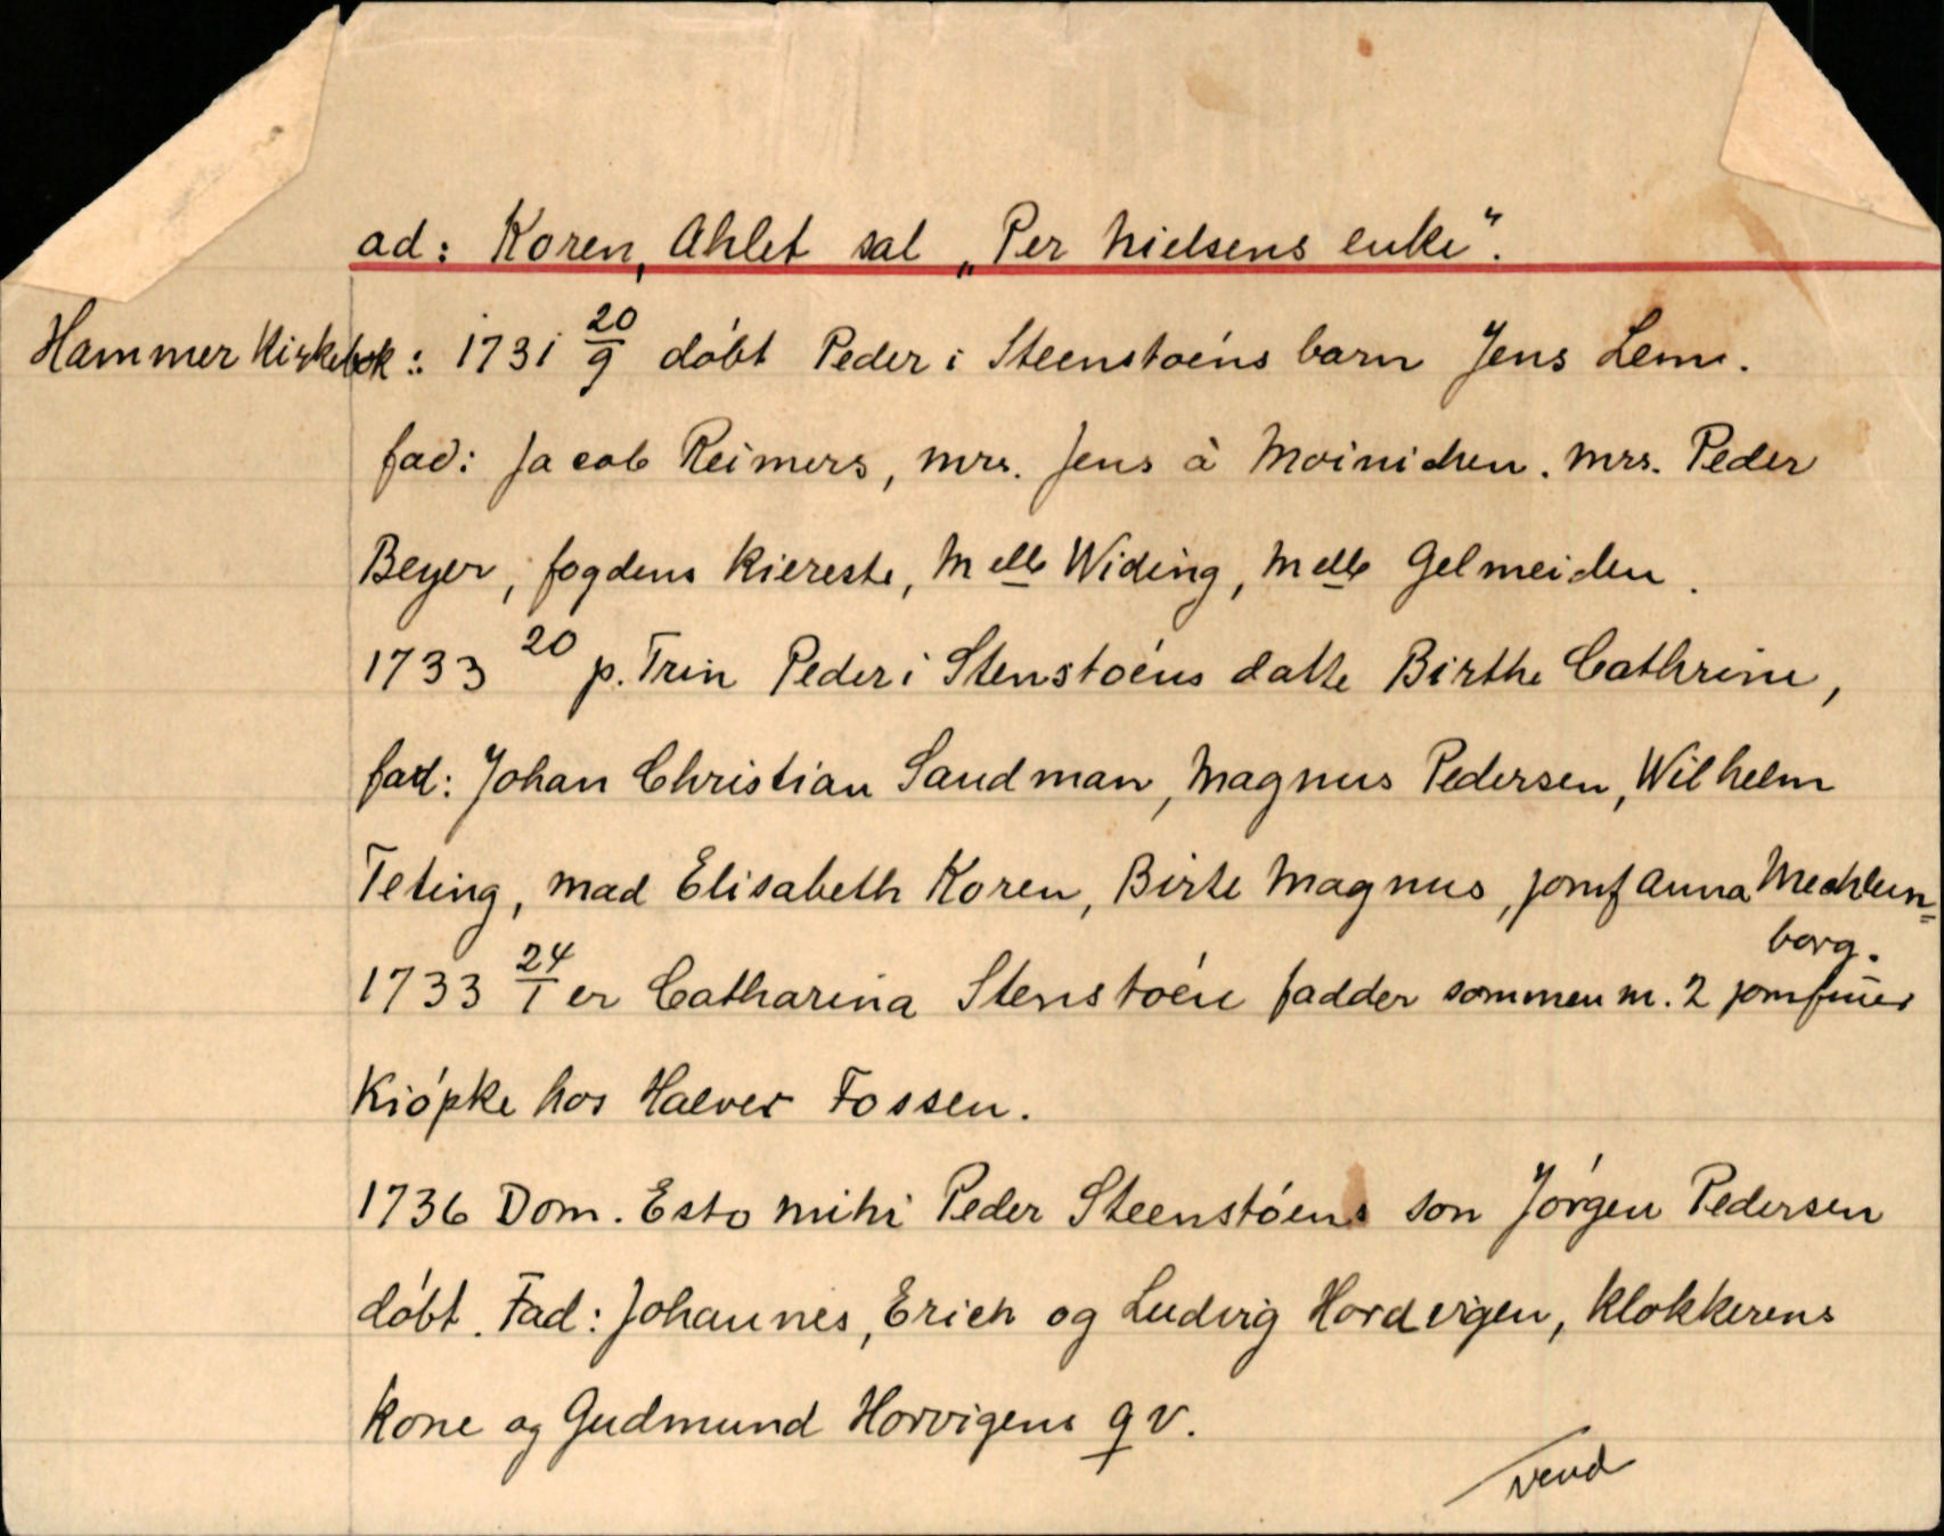 ad: Koren, Ahlet sal „Per Nielsens enke".
Hammer Kirkebok: 1731 20/9 døbt Peder i Steenstøens barn Jens Lem.
fad: Jacob Reimers, mrs. Jens à Moinichen. mrs. Peder
Beyer, fogdens Kiereste, Melle Widing, Melle Gelmeiden.
1733 20 p. Trin Peder i Stenstøens datte Birthe Cathrine,
fad: Johan Christian Sandman, Magnus Pedersen, Wilhelm
Teting, mad Elisabeth Koren, Birte Magnus, jomf Anna Mechlen=
borg.
1733 24/1 er Catharina Stenstøen fadder sommen m. 2 jomfruer
Kiøpke hos Halver Fossen.
1736 Dom. Esto mihi Peder Steenstøens søn Jørgen Pedersen
døbt. Fad: Johannes, Erich og Ludvig Hordvigen, Klokkerens
Kone og Gudmund Horvigens qv.
vend